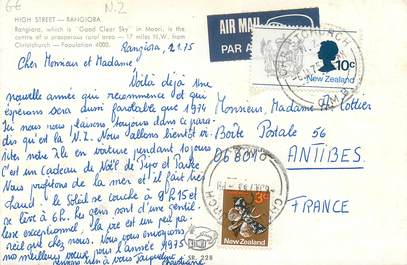 GE
N.Z
HIGH STREET - RANGIORA
Rangiora, which is "Good Clear Sky" in Maori, is the
centre of a prosperous rural area - 17 miles N.W. from
Christchurch - Population 4000.
AIR MAIL
PAR AVION
Rangiora, 2.1.75
Cher Monsieur et Madame,
Voilà déjà une
nouvelle année qui recommence et qui
espérons sera aussi favorable que 1974
Ici nous nous plaisons toujours dans ce para-
dis qu'est la N.Z. Nous allons bientôt vi-
siter notre île en voiture pendant 10 jours
C'est un cadeau de Noël de
Nous profitons de la mer et il fait très
chaud. Le soleil se couche à 9h15 et
se lève à 6h. Les gens sont d'une gentil-
lesse exceptionnel, la vie est un peu pa-
reil que chez nous. Nous vous envoyons
nos meilleurs vœux pour l'année 1975
Jacqueline
SR. 228
10c
New Zealand
Monsieur, Madame
Boîte Postale 56
06801
ANTIBES
FRANCE
3c
New Zealand